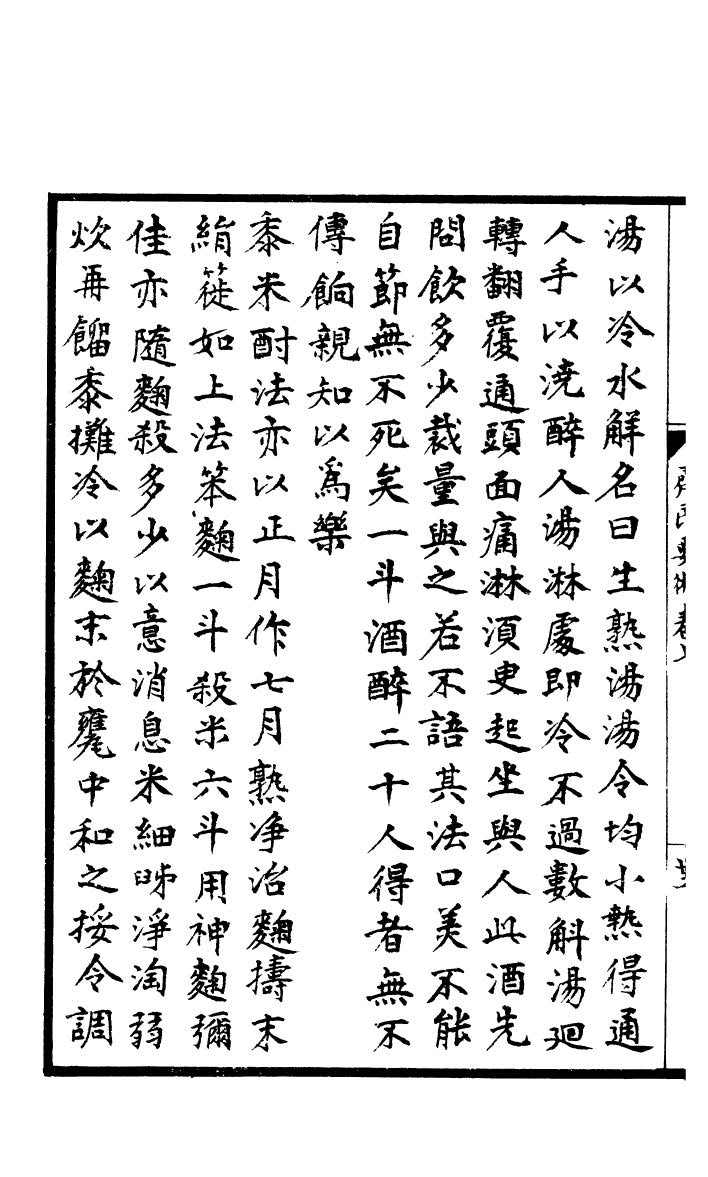 湯以冷水解名曰生熟湯湯令均小熱得通
人手以澆醉人湯淋處即冷不過數斛湯廻
轉翻覆通頭面痛淋湏臾起坐與人此酒先
問飲多少裁量與之若不語其法口美不能
自節無不死矣一斗酒醉二十人得者無不
傳餉親知以爲樂
黍米酎法亦以正月作七月熟净治麴擣末
絹簁如上法笨麴一斗殺米六斗用神麴彌
佳亦隨麴殺多少以意消息米細䀯淨淘弱
炊再餾黍攤冷以麴末於甕中和之挼令調
齊民要術卷